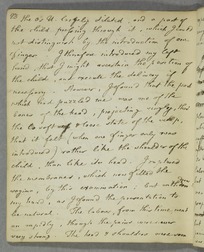 The Os Uteri largely dilated, and a part of
the child passing through it, which I could
not distinguish by the introduction of one
finger. I therefore introduced my left
hand, that I might ascertain the position of
the child, and assist the delivery if
necessary. However, I found that the part
which had puzzled me was one of the
bones of the head, projecting
the soft and loose state of the
that it felt, (when one finger only was
introduced) rather like the shoulder of the
child, than like its head. I ruptured
the membranes, which now filled the
vagina, by this examination; but withdrew
my hand, as I found the presentation to
be natural. The labour, from this time, went
on rapidly, though the pains were
very strong. The head & shoulders were